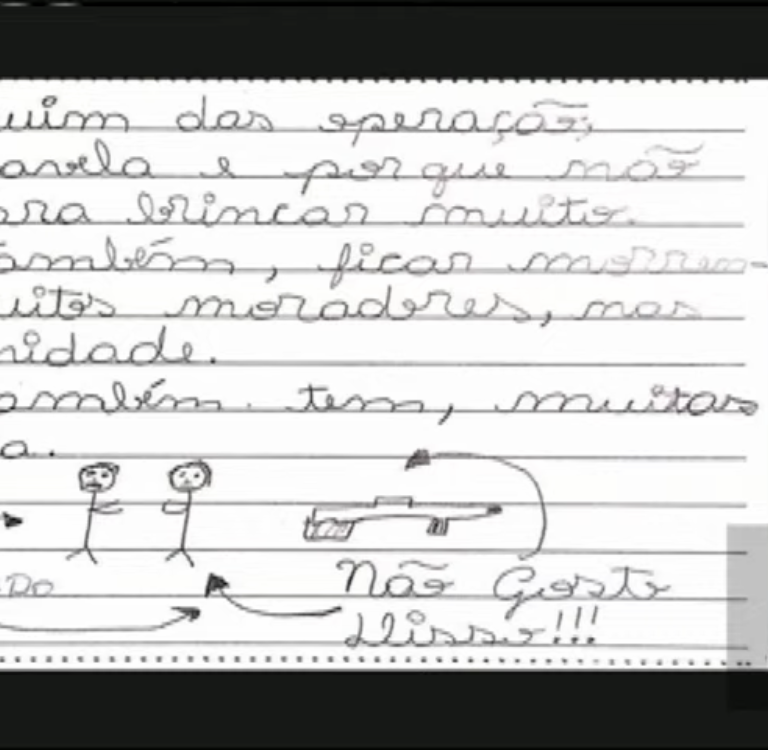 uim das operação,
avela e por que não
ara brincar muito.
ambém, ficar morren-
uitos moradores, nas
nidade.
ambém. tem, muitas
a..
DO
Não Gosto
Disso!!!